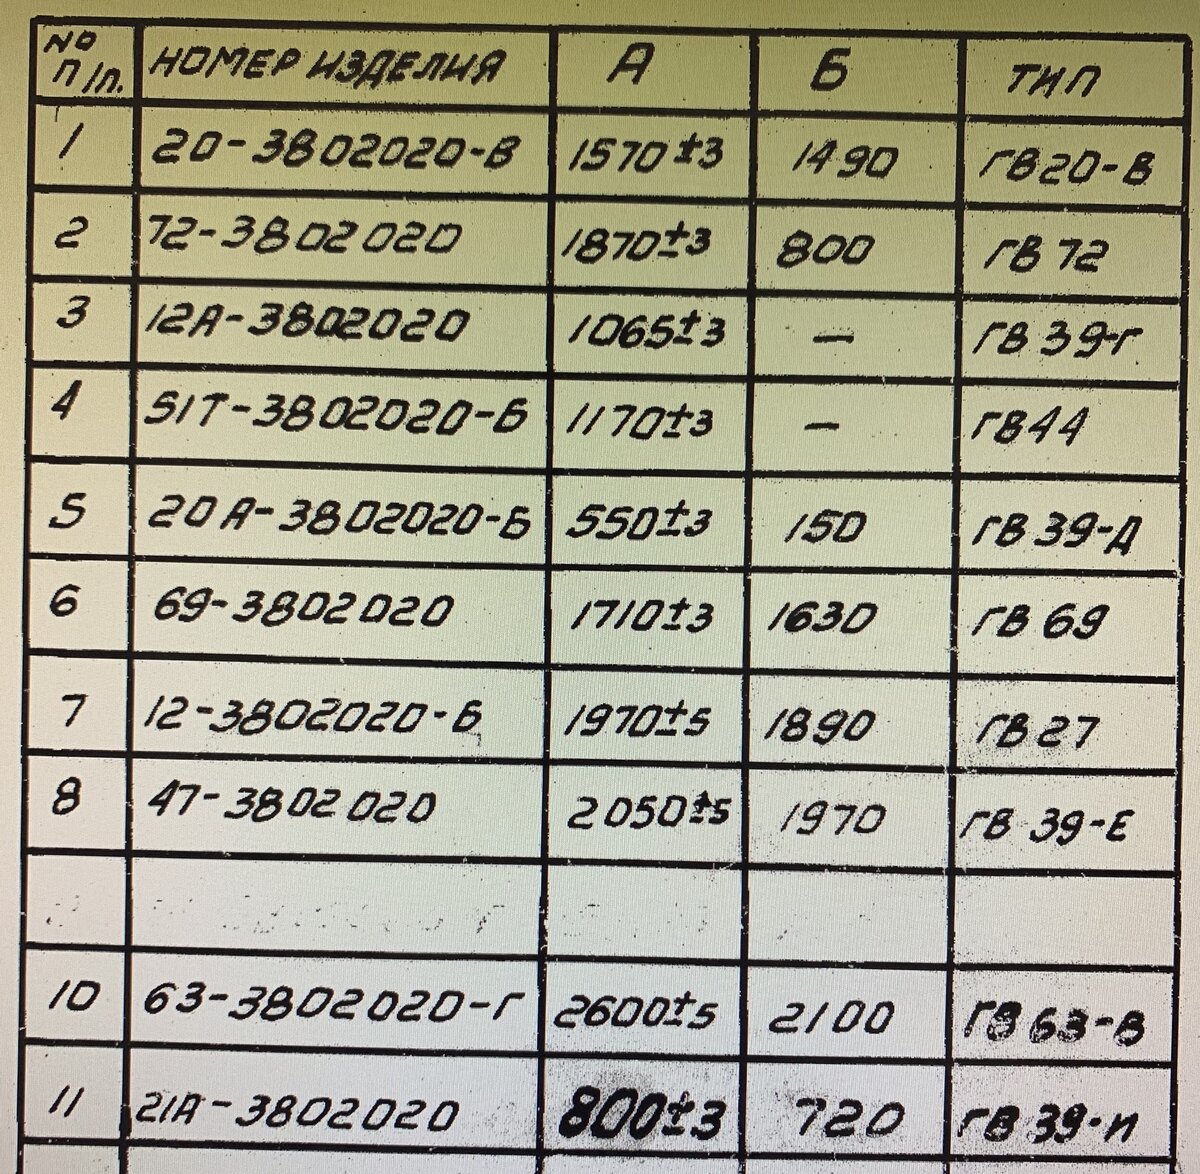 № п/п. НОМЕР ИЗДЕЛИЯ А Б ТИП
1 20-3802020-В 1570±3 1490 ГВ20-В
2 72-3802020 1870±3 800 ГВ 72
3 12А-3802020 1065±3 — ГВ 39-Г
4 51Т-3802020-Б 1170±3 — ГВ44
5 20А-3802020-Б 550±3 150 ГВ 39-Д
6 69-3802020 1710±3 1630 ГВ 69
7 12-3802020-Б 1970±5 1890 ГВ 27
8 47-3802020 2050±5 1970 ГВ 39-Е
10 63-3802020-Г 2600±5 2100 ГВ 63-В
11 21А-3802020 800±3 720 ГВ 39-И